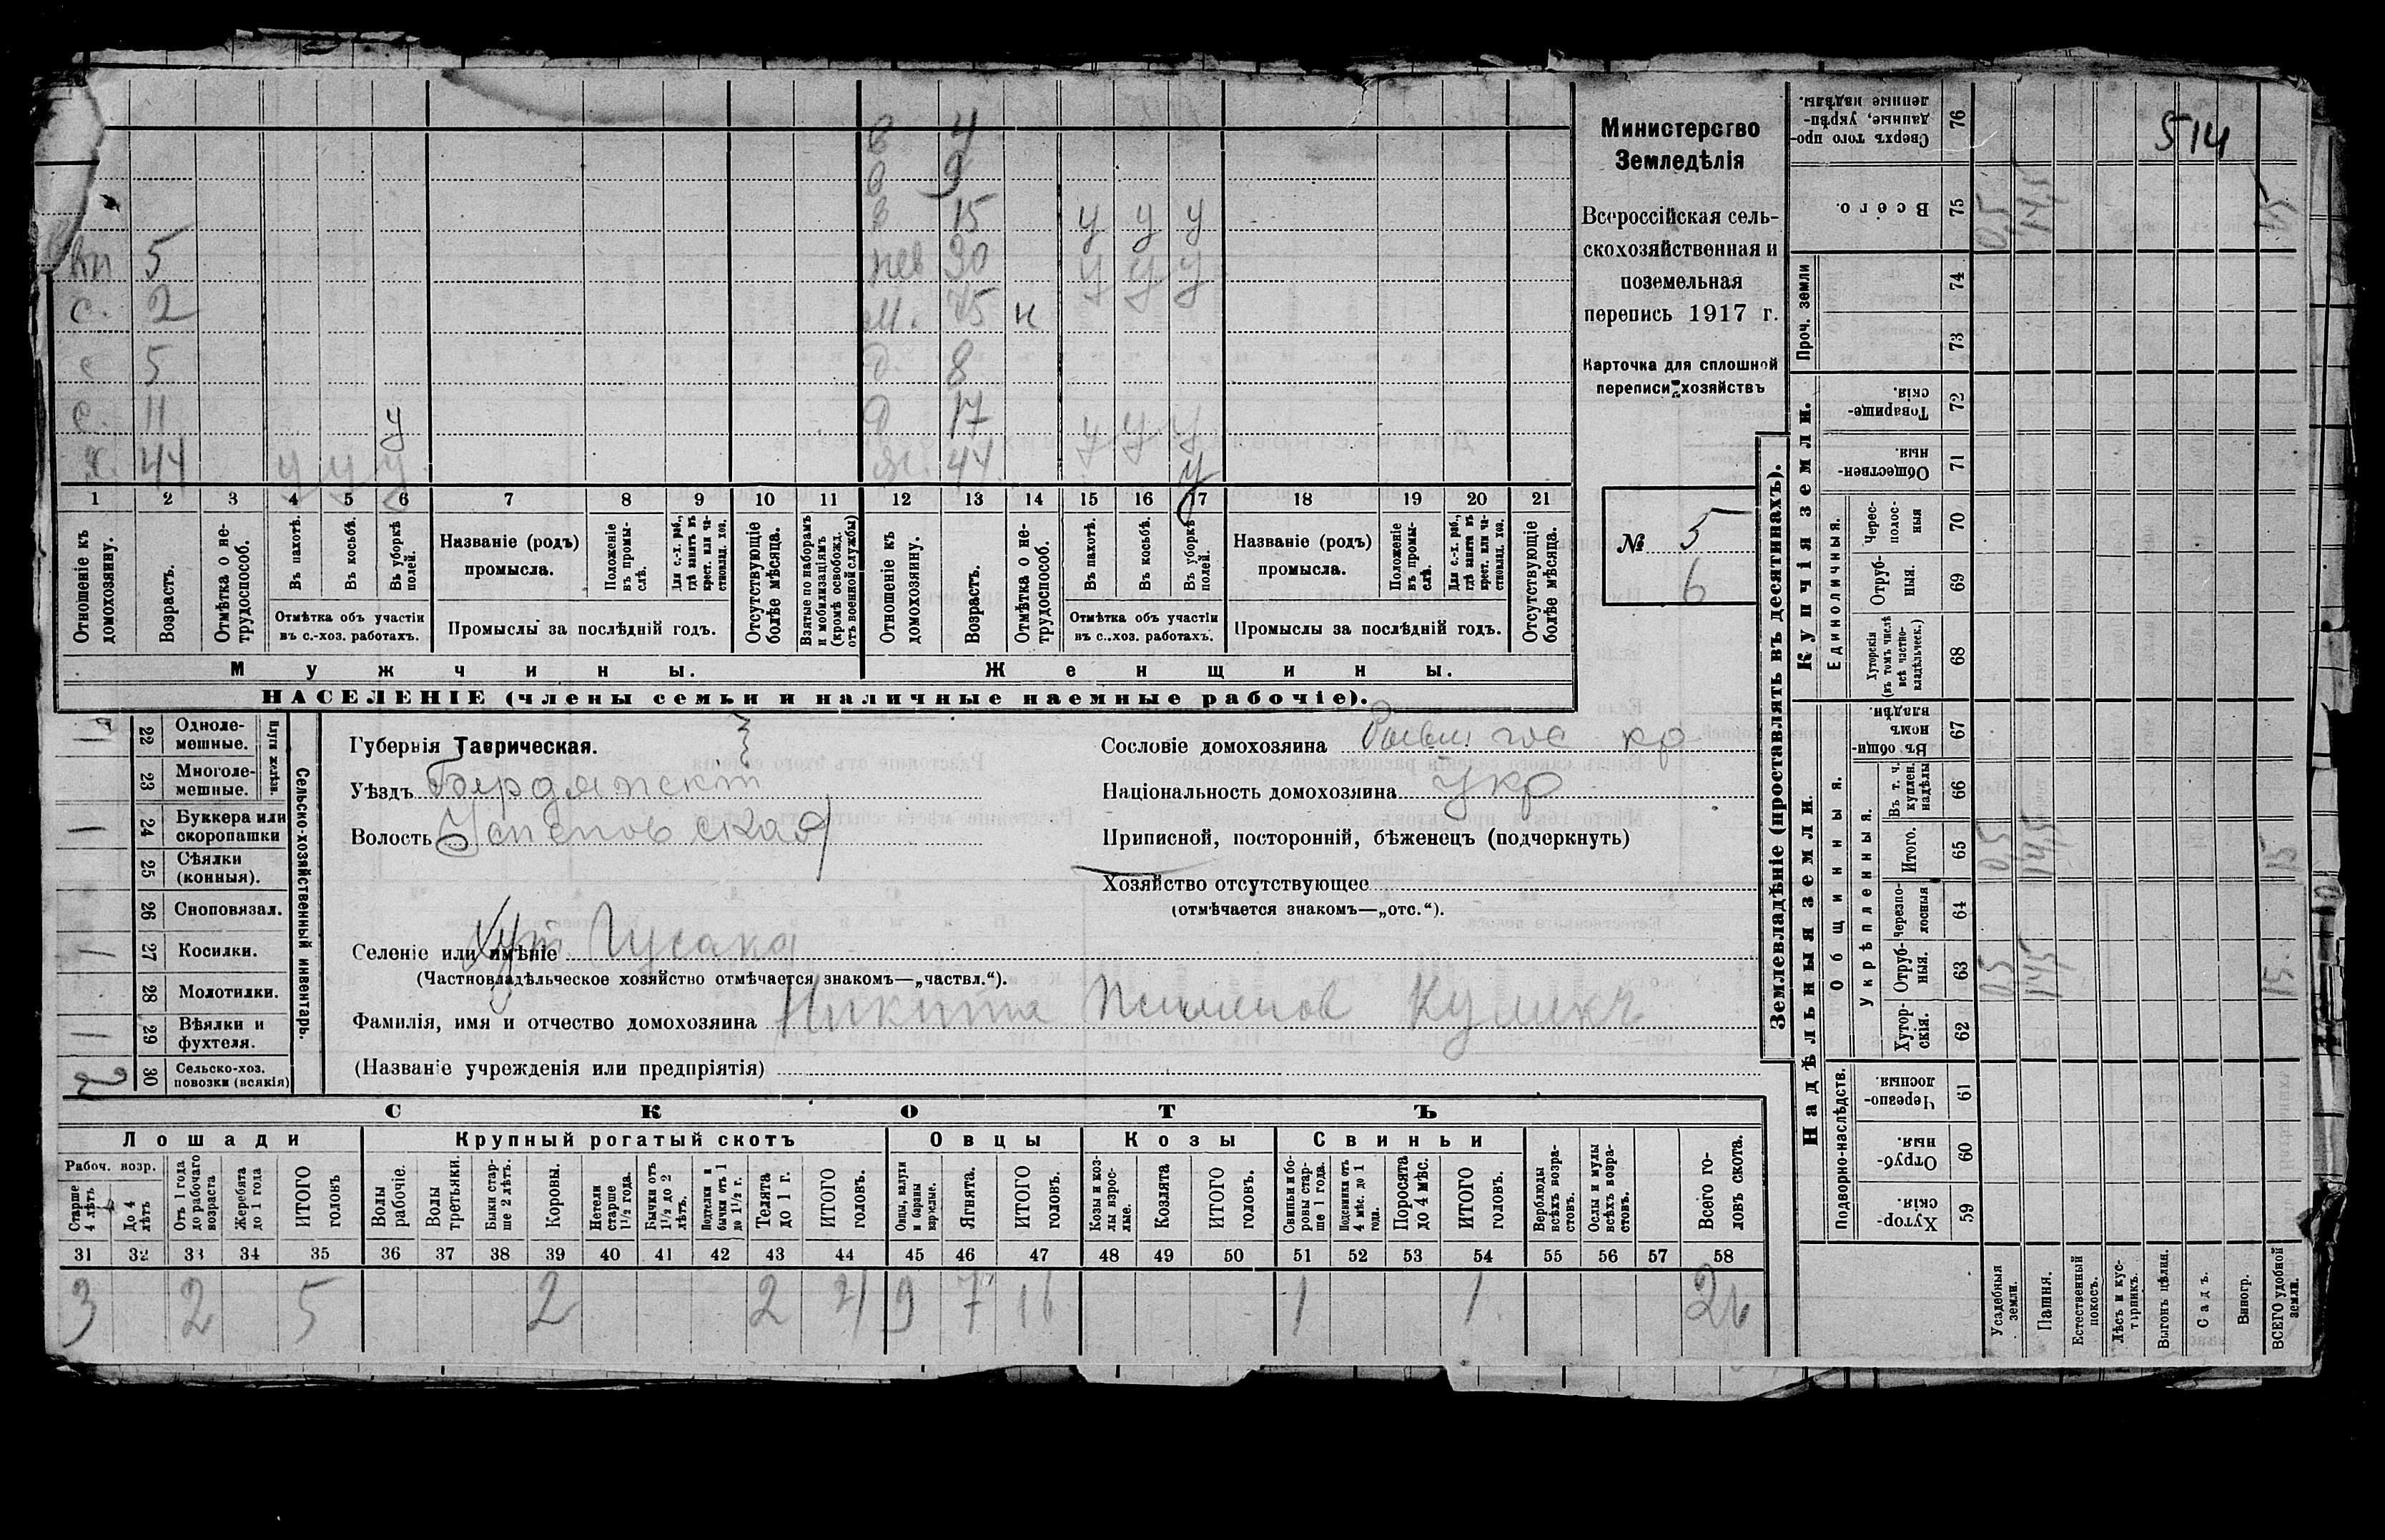 в 4
в 9
в 15 у у у
вн 5 нев 30 у у у
с. 2 м. 75 н
с 5 д. 8
с. 11 у д 17 у у у
х. 44 у у у ж. 44 у
1 2 3 4 5 6 7 8 9 10 11 12 13 14 15 16 17 18 19 20 21
Отношеніе къ домохозяину.
Возрастъ.
Отмѣтка о не-трудоспособ.
Въ пахотѣ.
Въ косьбѣ.
Въ уборкѣ полей.
Отмѣтка объ участіи
въ с.-хоз. работахъ.
Названіе (родъ)
промысла.
Положеніе въ промы-слѣ.
Для с.-х. раб., гдѣ занятъ въ крест. или ча-стновлад. хоз.
Промыслы за послѣдній годъ.
Отсутствующіе болѣе мѣсяца.
Взятые по наборамъ и мобилизаціямъ (кромѣ освобожд. отъ военной службы)
Отношеніе къ домохозяину.
Возрастъ.
Отмѣтка о не-трудоспособ.
Въ пахотѣ.
Въ косьбѣ.
Въ уборкѣ полей.
Отмѣтка объ участіи
въ с..хоз. работахъ.
Названіе (родъ)
промысла.
Положеніе въ промы-слѣ.
Для с.-х. раб., гдѣ занята въ крест. или ча-стновлад. хоз.
Промыслы за послѣдній годъ.
Отсутствующіе болѣе мѣсяца.
Мужчины.
Женщины.
НАСЕЛЕНІЕ (члены семьи и наличные наемные рабочіе).
Министерство
Земледѣлія
Всероссійская сель-
скохозяйственная и
поземельная
перепись 1917 г.
Карточка для сплошной
переписи хозяйствъ
№ 5
6
Сельско-хозяйственный инвентарь.
Плуги желѣзн.
22 Одноле-мешные. 1
23 Многоле-мешные.
24 Буккера или скоропашки 1
25 Сѣялки (конныя).
26 Сноповязал.
27 Косилки. 1
28 Молотилки.
29 Вѣялки и фухтеля. 1
30 Сельско-хоз. повозки (всякія) 2
Губернія Таврическая.
Уѣздъ Бердянскій
Волость Успеновская
Селеніе или имѣніе Хут Гусака
(Частновладѣльческое хозяйство отмѣчается знакомъ—„частвл.“).
Фамилія, имя и отчество домохозяина Никита Куликъ
(Названіе учрежденія или предпріятія)
Сословіе домохозяина Бывш гос кр
Національность домохозяина Укр
Приписной, посторонній, бѣженецъ (подчеркнуть)
Хозяйство отсутствующее
(отмѣчается знакомъ—„отс.“).
СКОТЪ
Лошади Крупный рогатый скотъ Овцы Козы Свиньи
Рабоч. возр.
Старше 4 лѣтъ
До 4 лѣтъ
Отъ 1 года до рабочаго возраста
Жеребята до 1 года
ИТОГО головъ
Волы рабочіе.
Волы третьяки.
Быки стар-ше 2 лѣтъ.
Коровы.
Нетели старше 1½ года.
Бычки отъ 1½ до 2 лѣтъ.
Подтелки и бычки отъ 1 до 1½ г.
Телята до 1 г.
ИТОГО головъ.
Овцы, валухи и бараны взрослые.
Ягнята.
ИТОГО головъ.
Козы и коз-лы взрос-лые.
Козлята
ИТОГО головъ.
Свиньи и бо-ровы стар-ше 1 года.
Подсвинки отъ 4 мѣс. до 1 года.
Поросята до 4 мѣс.
ИТОГО головъ.
Верблюды всѣхъ возра-стовъ.
Ослы и мулы всѣхъ возра-стовъ.
Всего го-ловъ скота.
31 32 33 34 35 36 37 38 39 40 41 42 43 44 45 46 47 48 49 50 51 52 53 54 55 56 57 58
3 2 5 2 2 4 9 7 16 1 1 26
Землевладѣніе (проставлять въ десятинахъ).
Надѣльныя земли.
Купчія земли.
Проч. земли
Подворно-наслѣдств.
Общинныя.
Укрѣпленныя.
Единоличныя.
76 Сверхъ того про-данные, укрѣп-ленные надѣлы.
75 Всего. 0,5 14,5 15
74
73
72 Товарище-скія.
71 Обществен-ныя.
70 Черес-полос-ныя
69 Отруб-ныя.
68 Хуторскія (въ томъ числѣ всѣ частно-владѣльческ.)
67 Въ общи-номъ владѣн.
66 Въ т. ч. куплен. надѣлы
65 Итого. 0,5 14,5 15
64 Черезпо-лосныя
63 Отруб-ныя. 0,5 14,5 15
62 Хутор-скія.
61 Черезпо-лосныя.
60 Отруб-ныя.
59 Хутор-скія.
Усадебныя земли.
Пашня.
Естественный покосъ.
Лѣсъ и кус-тарникъ.
Выгонъ цѣлин.
Садъ.
Виногр.
ВСЕГО удобной земли.
514